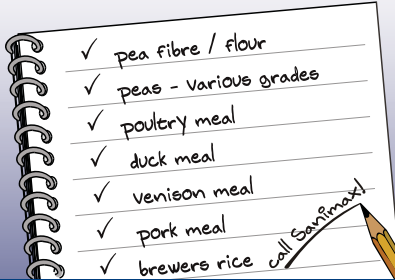 ✓ pea fibre / flour
✓ peas - various grades
✓ poultry meal
✓ duck meal
✓ venison meal
✓ pork meal
✓ brewers rice
call Sanimax!